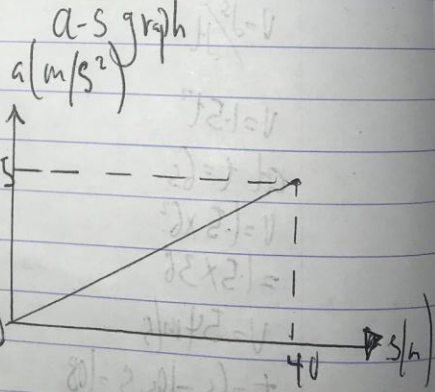 a-s graph
a(m/s²)
5
0
40
s(m)